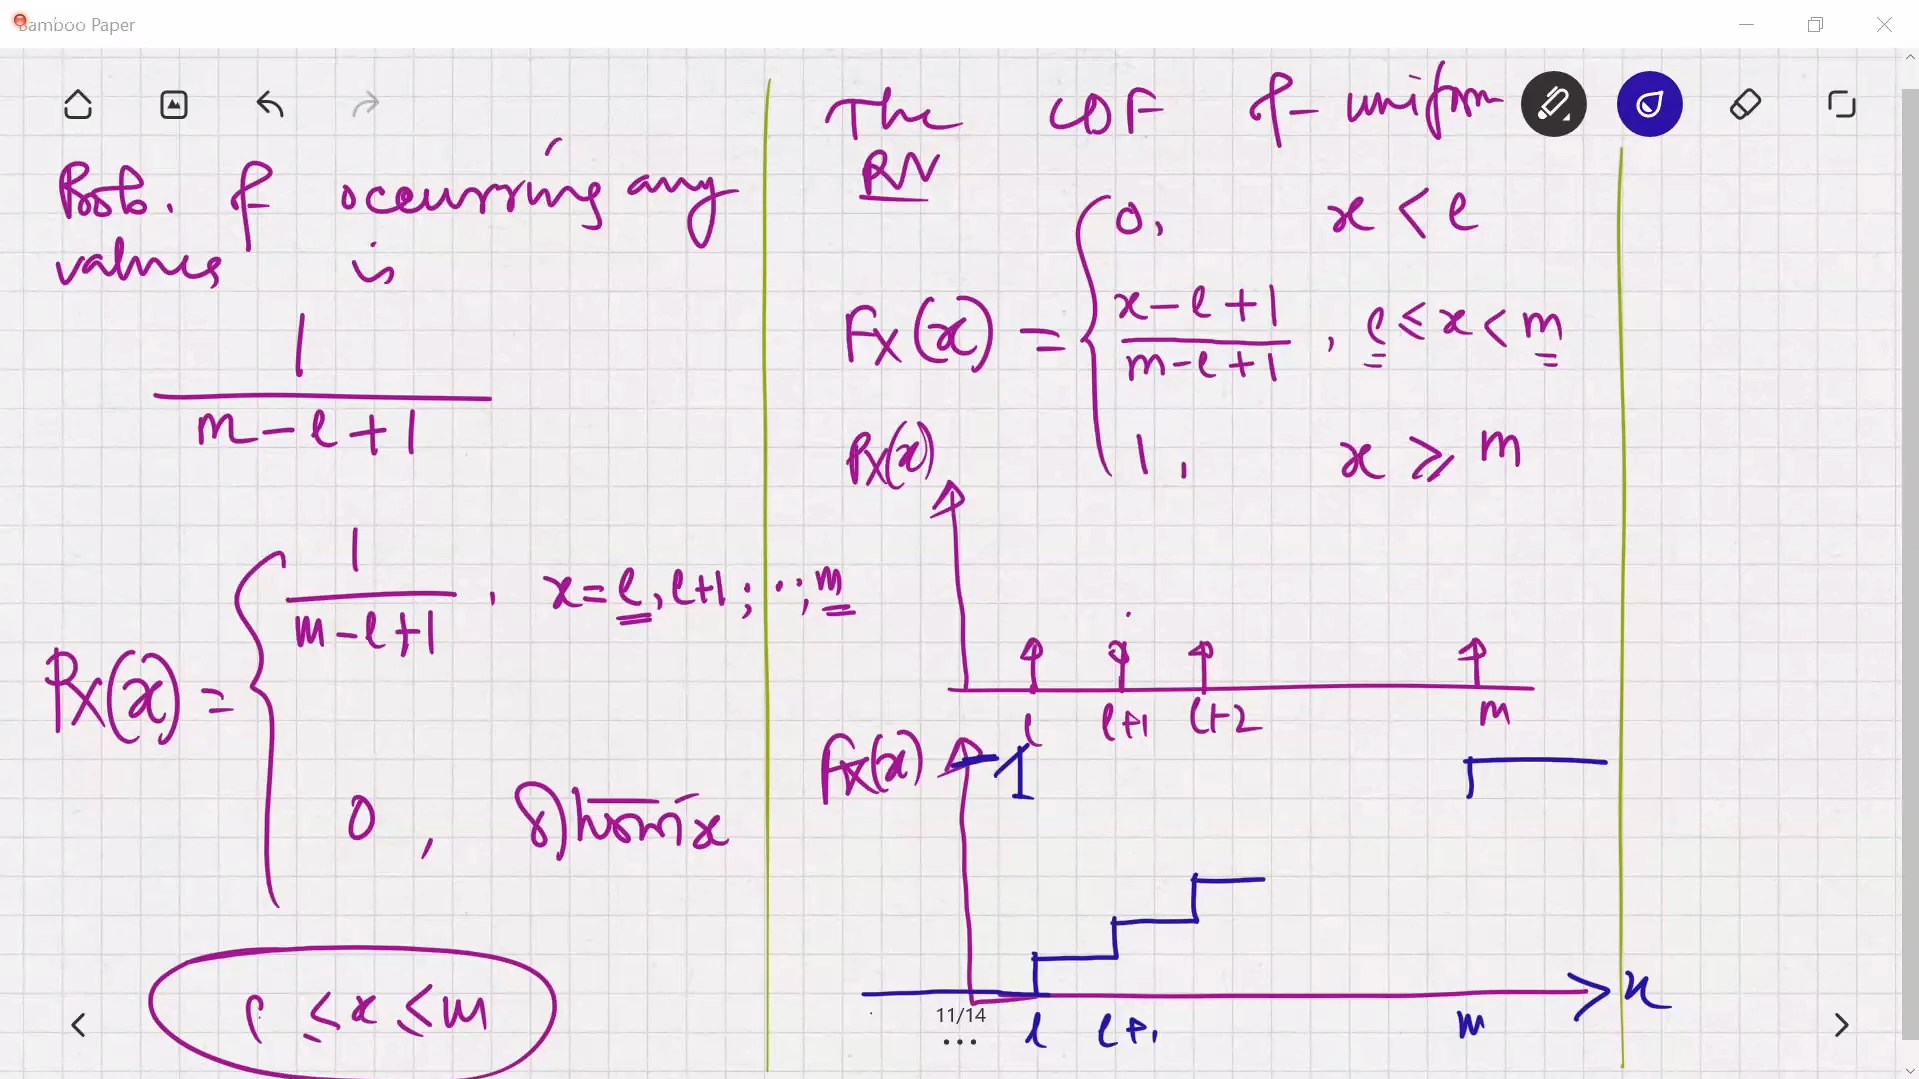 Bamboo Paper
Prob. of occurring any
values is
1
m-l+1
Px(x) =
1
m-l+1 , x=l, l+1; ..; m
0 ,
l ≤ x ≤ m
The CDF of uniform
RV
Fx(x) =
0, x < l
x-l+1
m-l+1 , l ≤ x < m
1, x ≥ m
Px(x)
l l+1 l+2 m
Fx(x) 1
x
l l+1 m
11/14